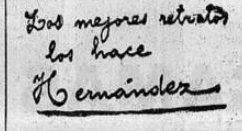 Los mejores retratos
los hace
Hernández